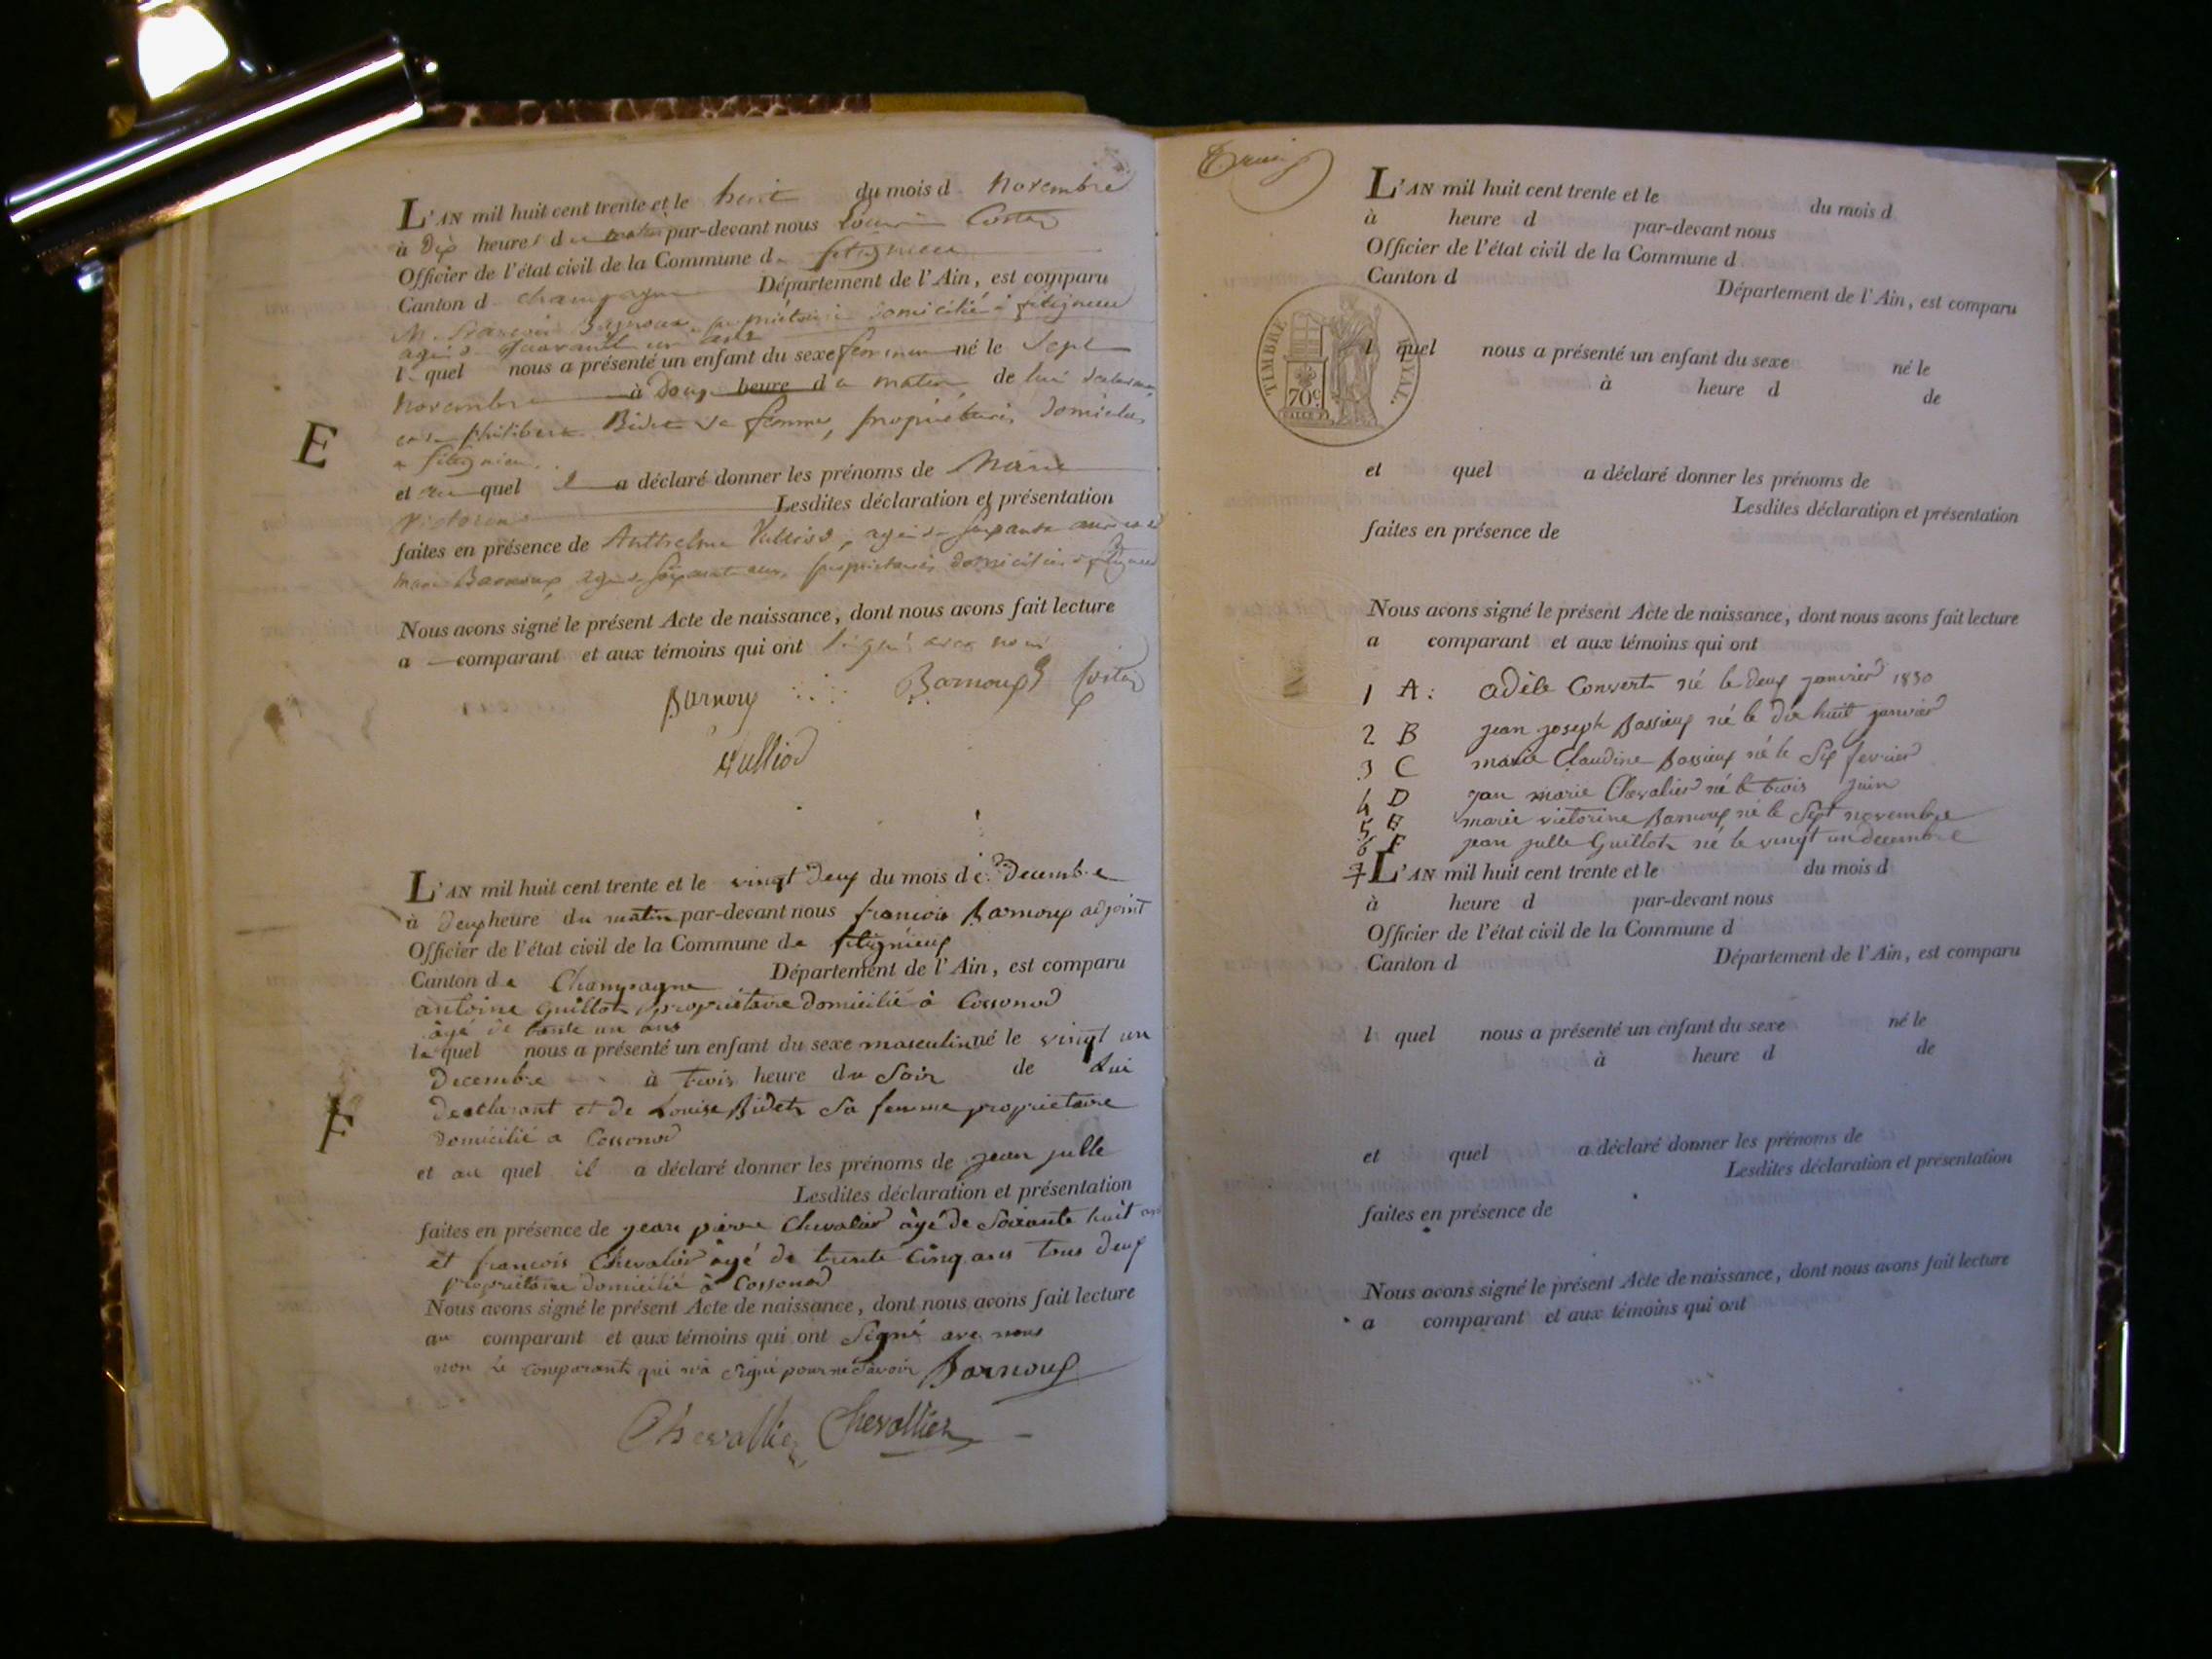 L'AN mil huit cent trente et le huit du mois d novembre
à dix heures du matin par-devant nous Costaz
Officier de l'état civil de la Commune d. fitignieu
Canton d champagne Département de l'Ain, est comparu
M. françois Barnoux propriétaire domicilié à fitignieu
agé d quarante un ans
l. quel nous a présenté un enfant du sexe feminin né le Sept
Novembre à heure du matin de lui declarant
Bidet sa femme, propriétaires domicilies
a fitignieu.
E
et au quel il a déclaré donner les prénoms de Marie
Victorine Lesdites déclaration et présentation
faites en présence de Anthelme Vulliod, agé de soixante
Barnoux, agé de soixante ans, propriétaires domiciliés a fitignieu
Nous avons signé le présent Acte de naissance, dont nous avons fait lecture
a comparant et aux témoins qui ont signé avec nous
Barnoux Barnoux Costaz
Vulliod
L'AN mil huit cent trente et le vingt deux du mois de Decembre
à deux heure du matin par-devant nous francois Barnoux adjoint
Officier de l'état civil de la Commune de fitignieux
Canton de Champagne Département de l'Ain, est comparu
antoine Guillot propriétaire domicilié à Cossonod
âgé de trente un ans
le quel nous a présenté un enfant du sexe masculin né le vingt un
Decembre à trois heure du Soir de Lui
declarant et de Louise Bidet Sa femme proprietaire
domicilié a Cossonod
F
et au quel il a déclaré donner les prénoms de jean julle
Lesdites déclaration et présentation
faites en présence de jean pierre Chevalier âgé de Soixante huit ans
et francois Chevalier âgé de trente Cinq ans tous deux
proprietaire domicilié à Cossonod
Nous avons signé le présent Acte de naissance, dont nous avons fait lecture
au comparant et aux témoins qui ont Signé avec nous
non Le comparant qui n'a signé pour ne Savoir Barnoux
Chevallier Chevallier
L'AN mil huit cent trente et le du mois d
à heure d par-devant nous
Officier de l'état civil de la Commune d
Canton d Département de l'Ain, est comparu
TIMBRE ROYAL.
70c
l quel nous a présenté un enfant du sexe né le
à heure d de
et quel a déclaré donner les prénoms de
Lesdites déclaration et présentation
faites en présence de
Nous avons signé le présent Acte de naissance, dont nous avons fait lecture
a comparant et aux témoins qui ont
1 A: adèle Convert né le deux janvier 1830
2 B jean joseph Bassieux né le dix huit janvier
3 C marie Claudine Bassieux né le Six fevrier
4 D jean marie Chevalier né le trois juin
5 E marie victorine Barnoux né le Sept novembre
6 F jean julle Guillot né le vingt un decembre
7
L'AN mil huit cent trente et le du mois d
à heure d par-devant nous
Officier de l'état civil de la Commune d
Canton d Département de l'Ain, est comparu
l quel nous a présenté un enfant du sexe né le
à heure d de
et quel a déclaré donner les prénoms de
Lesdites déclaration et présentation
faites en présence de
Nous avons signé le présent Acte de naissance, dont nous avons fait lecture
a comparant et aux témoins qui ont